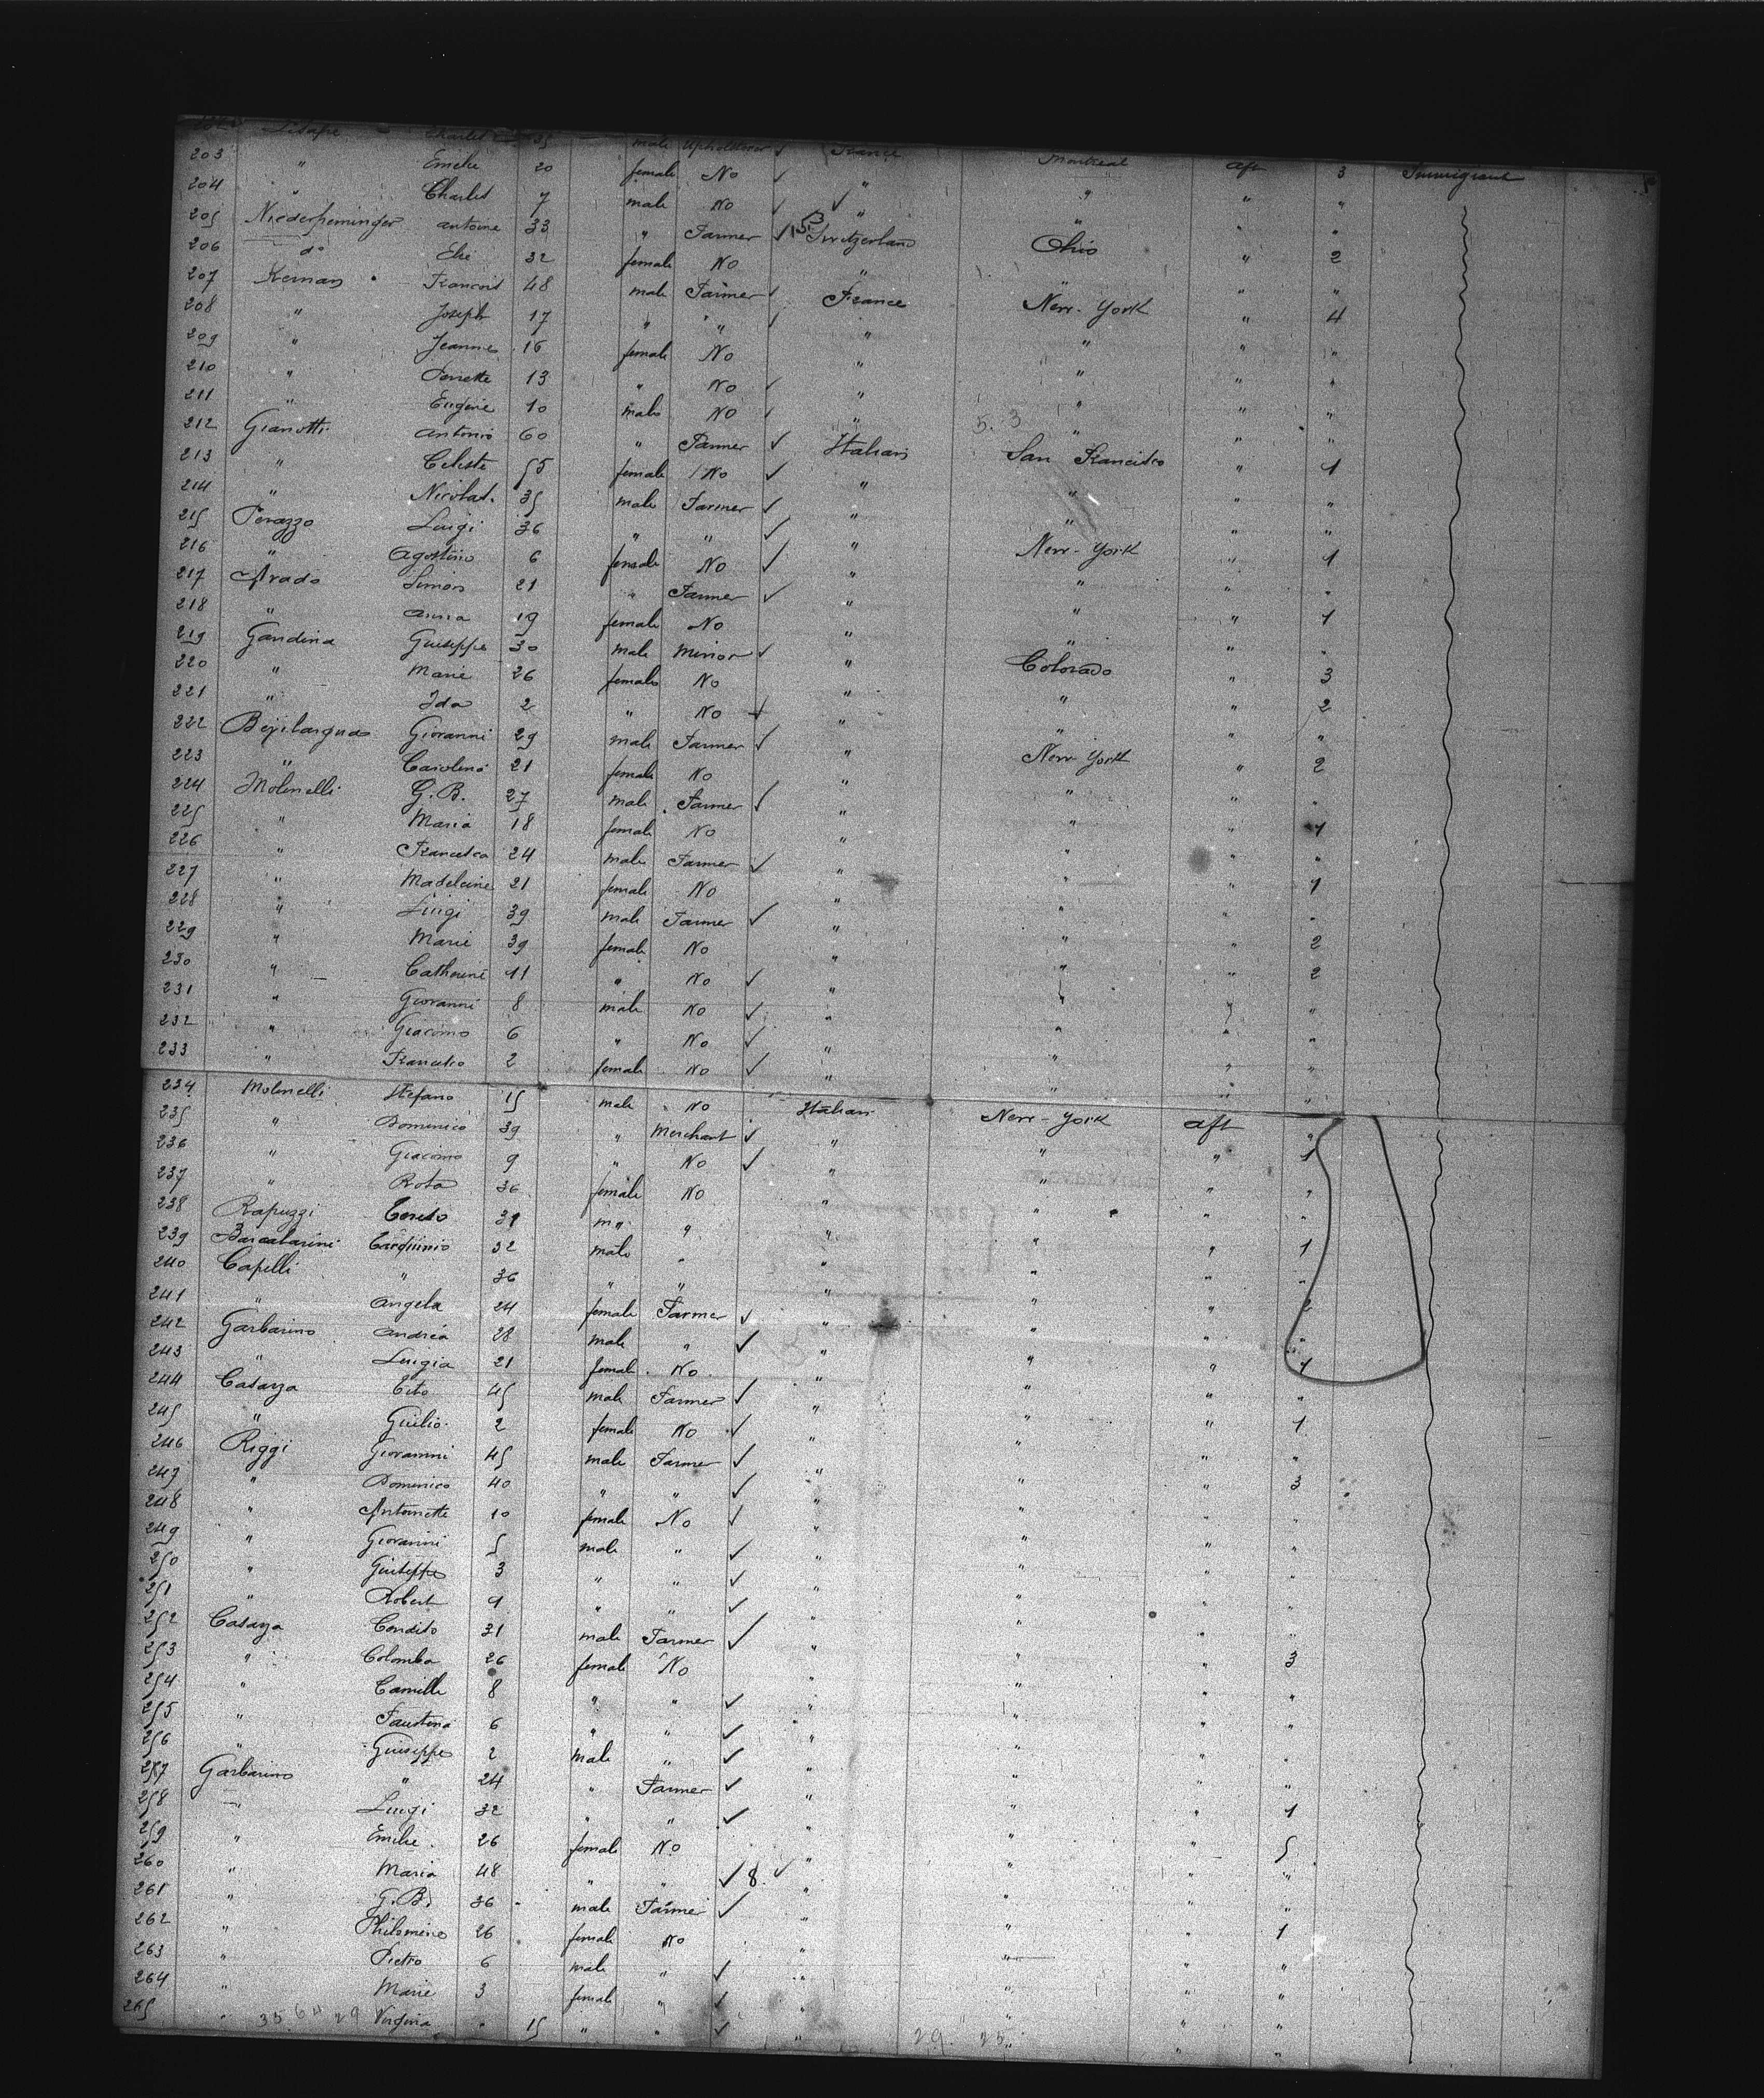 male Upholsterer ✓ France Montreal aft 3 Immigrant
203 " Emelie 20 female No ✓ " " " "
204 " Charles 7 male No ✓ " " " "
205 Niederpeminger antoine 33 " Farmer ✓ Switzerland Ohio " 2
206 do Elie 32 female No " " " "
207 Kernan Francois 48 male Farmer ✓ France New-York " 4
208 " Joseph 17 " " ✓ " " " "
209 " Jeanne 16 female No " " " "
210 " 13 " No ✓ " " " "
211 " Eugene 10 male No ✓ " " " "
212 Gianotti antonio 60 " Farmer ✓ Italian San Francisco " 1
213 " Celeste 55 female No ✓ " " " "
214 " Nicolas 35 male Farmer ✓ " " " "
215 Perazzo Luigi 36 " " ✓ " New-York " 1
216 " Agostino 6 female No ✓ " " " "
217 Arado Simon 21 " Farmer ✓ " " " 1
218 " anna 19 female No " " " "
219 Gandina Guiseppe 30 male Minor ✓ " Colorado " 3
220 " Marie 26 female No " " " 2
221 " Ida 2 " No ✓ " " " "
222 Giovanni 29 male Farmer ✓ " New-York " 2
223 " Carolina 21 female No " " " "
224 Molinelli G. B. 27 male Farmer ✓ " " " 1
225 " Maria 18 female No " " " "
226 " Francesca 24 male Farmer ✓ " " " 1
227 " Madeleine 21 female No " " " "
228 " Luigi 39 male Farmer ✓ " " " 2
229 " Marie 39 female No " " " 2
230 " Catherine 11 " No ✓ " " " "
231 " Giovanni 8 male No ✓ " " " "
232 " Giacomo 6 " No ✓ " " " "
233 " 2 female No ✓ " " " "
234 Molinelli Stefano 15 male No Italian New-York aft "
235 " Domenico 39 " Merchant ✓ " " " 1
236 " Giacomo 9 " No ✓ " " " "
237 " Rosa 36 female No " " " "
238 Rapuzzi 31 " " " " 1
239 32 male " " " " "
240 Capelli " 36 " " " " " 2
241 " Angela 24 female Farmer ✓ " " " "
242 Garbarino Andrea 28 male " ✓ " " " 1
243 " Luigia 21 female No " " " "
244 Casazza Tito 45 male Farmer ✓ " " " 1
245 " Guilio 2 female No ✓ " " " "
246 Riggi Giovanni 45 male Farmer ✓ " " " 3
247 " Domenico 40 " " ✓ " " " "
248 " Antoinette 10 female No ✓ " " " "
249 " Giovanni 5 male " ✓ " " " "
250 " Guiseppe 3 " " ✓ " " " "
251 " Robert 9 " " ✓ " " " "
252 Casazza Condito 31 male Farmer ✓ " " " 3
253 " Colomba 26 female No " " " "
254 " Camille 8 " " ✓ " " " "
255 " Faustina 6 " " ✓ " " " "
256 " Guiseppe 2 male " ✓ " " " "
257 Garbarino " 24 " Farmer ✓ " " " 1
258 " Luigi 32 " " ✓ " " " 5
259 " Emelie 26 female No " " " "
260 " Maria 48 " " ✓ 8 ✓ " " " "
261 " G. B. 36 male Farmer ✓ " " " 1
262 " Philomene 26 female No " " " "
263 " Pietro 6 male " ✓ " " " "
264 " Marie 3 female " ✓ " " " "
265 " Virginia " 15 " " ✓ " " " "